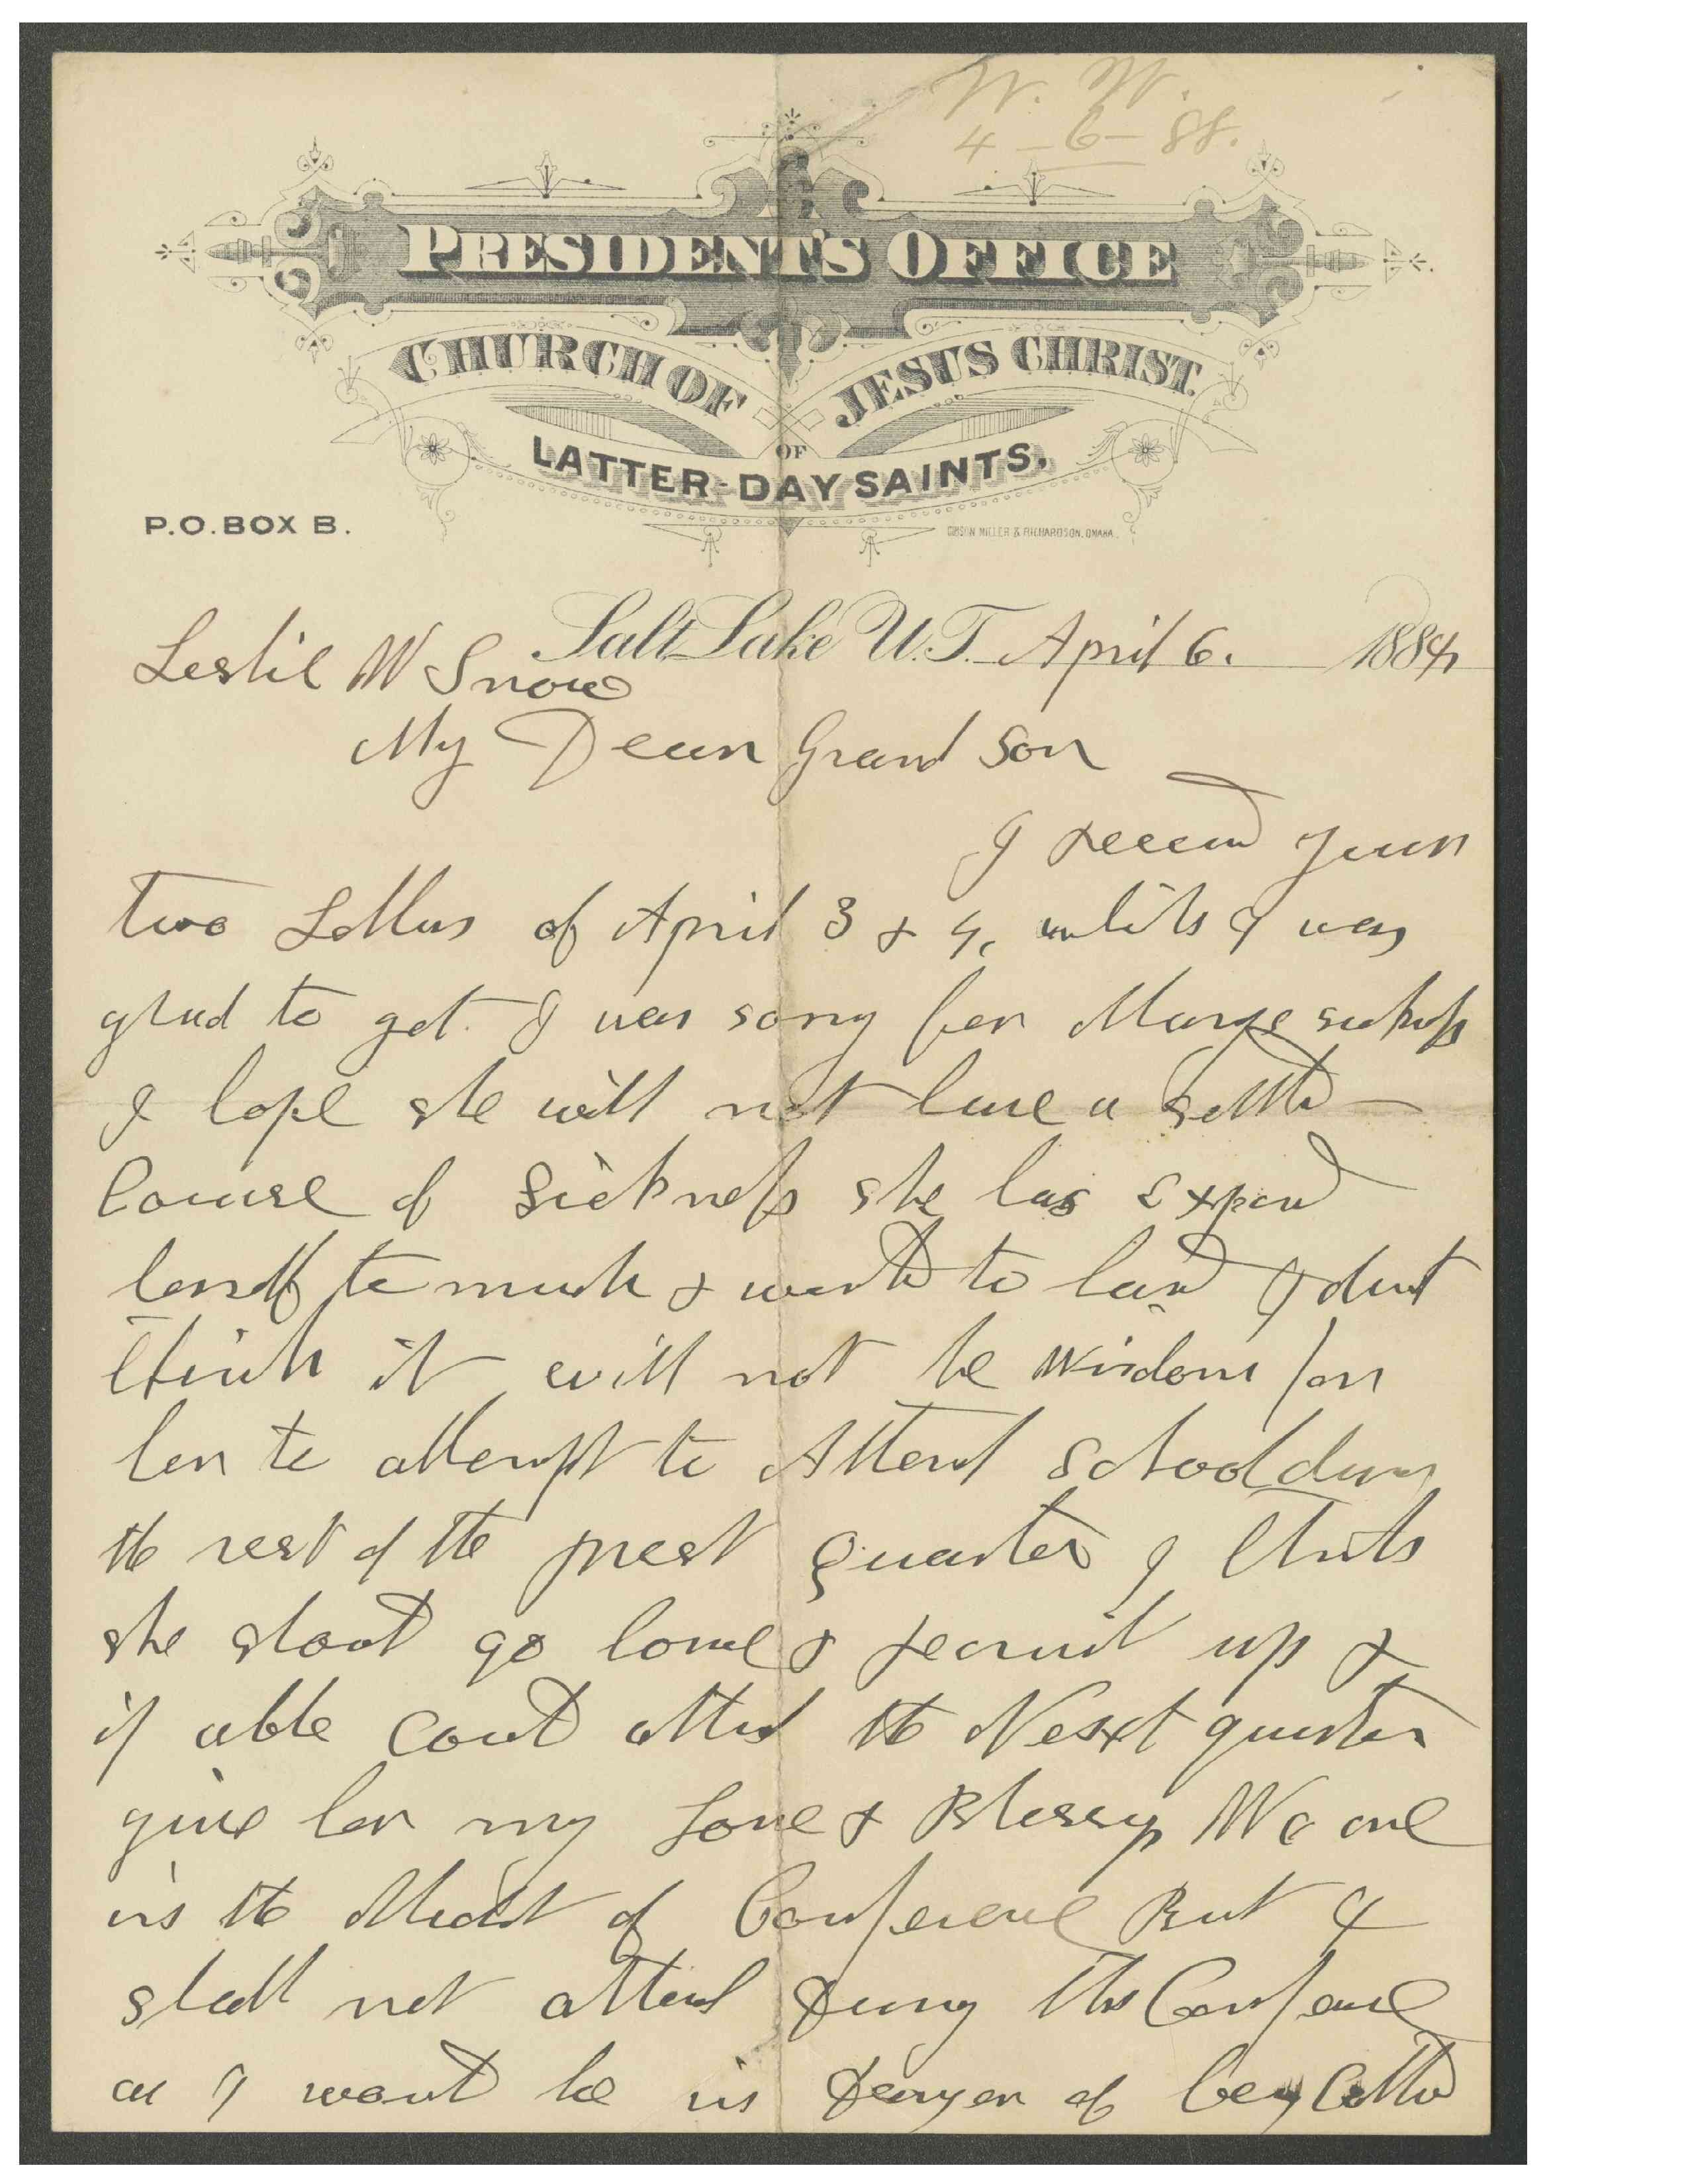 W. W.
4-6-88.
PRESIDENT'S OFFICE
CHURCH OF JESUS CHRIST
OF
LATTER-DAY SAINTS.
P.O. BOX B.
GIBSON MILLER & RICHARDSON, OMAHA.
Salt Lake U.T. April 6. 1888
Leslie W Snow
My Dear Grand Son
I receivd your
two Letters of April 3 & 4, which I was
glad to get. I was sorry for Marys sickness
I hope she will not have a settled
Course of Sickness she has Exposed
herself to much & workd to hard I dont
think it will not be wisdom for
her to attempt to Attend School during
the rest of the present quarter I think
she should go home & recruit up &
if able could attend the Next quarter
give her my Love & Blessing We are
in the Midst of Conference But I
shall not attend during this Conference
as I would be in danger of being Called